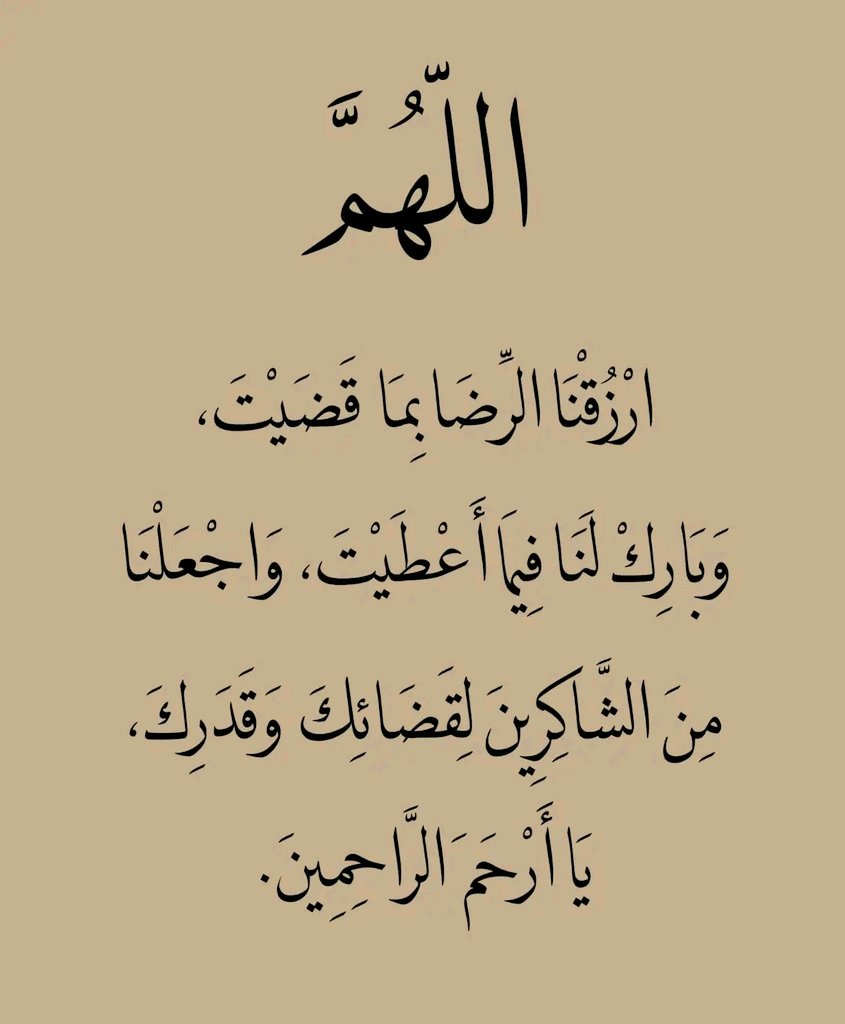 اللّٰهُمَّ
ارْزُقْنَا الرِّضَا بِمَا قَضَيْتَ،
وَبَارِكْ لَنَا فِيمَا أَعْطَيْتَ، وَاجْعَلْنَا
مِنَ الشَّاكِرِينَ لِقَضَائِكَ وَقَدَرِكَ،
يَا أَرْحَمَ الرَّاحِمِينَ.